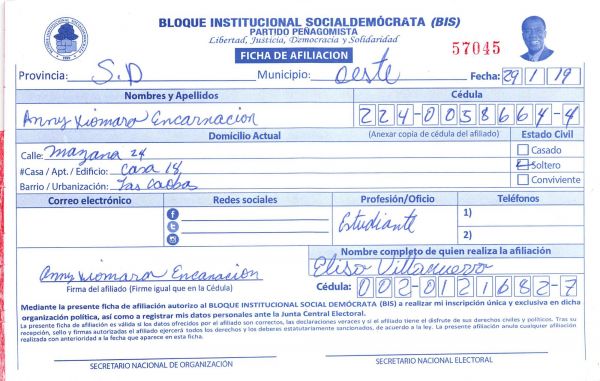 BLOQUE INSTITUCIONAL SOCIALDEMÓCRATA (BIS)
PARTIDO PEÑAGOMISTA
Libertad, Justicia, Democracia y Solidaridad
FICHA DE AFILIACION
57045
Provincia: S.D Municipio: Oeste Fecha: 29/1/19
Nombres y Apellidos Cédula
Anny Xiomara Encarnacion 224-0058664-4
Domicilio Actual (Anexar copia de cédula del afiliado) Estado Civil
Calle: Manzana 24 Casado
#Casa / Apt. / Edificio: Casa 18 Soltero
Barrio / Urbanización: Las Caobas Conviviente
Correo electrónico Redes sociales Profesión/Oficio Teléfonos
Estudiante 1)
2)
Nombre completo de quien realiza la afiliación
Anny Xiomara Encanacion Eliso
Firma del afiliado (Firme igual que en la Cédula) Cédula: 002-0121682-7
Mediante la presente ficha de afiliación autorizo al BLOQUE INSTITUCIONAL SOCIAL DEMÓCRATA (BIS) a realizar mi inscripción única y exclusiva en dicha
organización política, así como a registrar mis datos personales ante la Junta Central Electoral.
La presente ficha de afiliación es válida si los datos ofrecidos por el afiliado son correctos, las declaraciones veraces y si el afiliado tiene el disfrute de sus derechos civiles y políticos. Tras su
recepción, sello y firmas autorizadas el afiliado ejercerá todos los derechos y los deberes estatutariamente sancionados, de acuerdo a la ley. La presente afiliación anula cualquier afiliación
realizada con anterioridad a la fecha que aparece en esta ficha.
SECRETARIO NACIONAL DE ORGANIZACIÓN SECRETARIO NACIONAL ELECTORAL